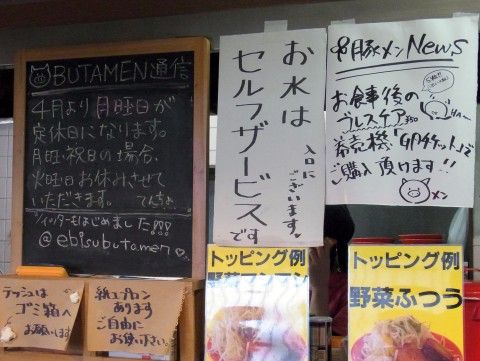 BUTAMEN通信
4月より月曜日が
定休日になります。
月曜、祝日の場合、
火曜日お休みさせて
いただきます。
ツイッターもはじめました!!!
@ebisubutamen
お水は
セルフサービスです
入口に
ございます。
豚メンNewS
お食事後の
ブレスケア
券売機「GPチケット」で
ご購入頂けます!!
メン
ティッシュは
ゴミ箱へ
お願いします
紙エプロン
あります
ご自由に
お使い下さい。
トッピング例
トッピング例
野菜ふつう